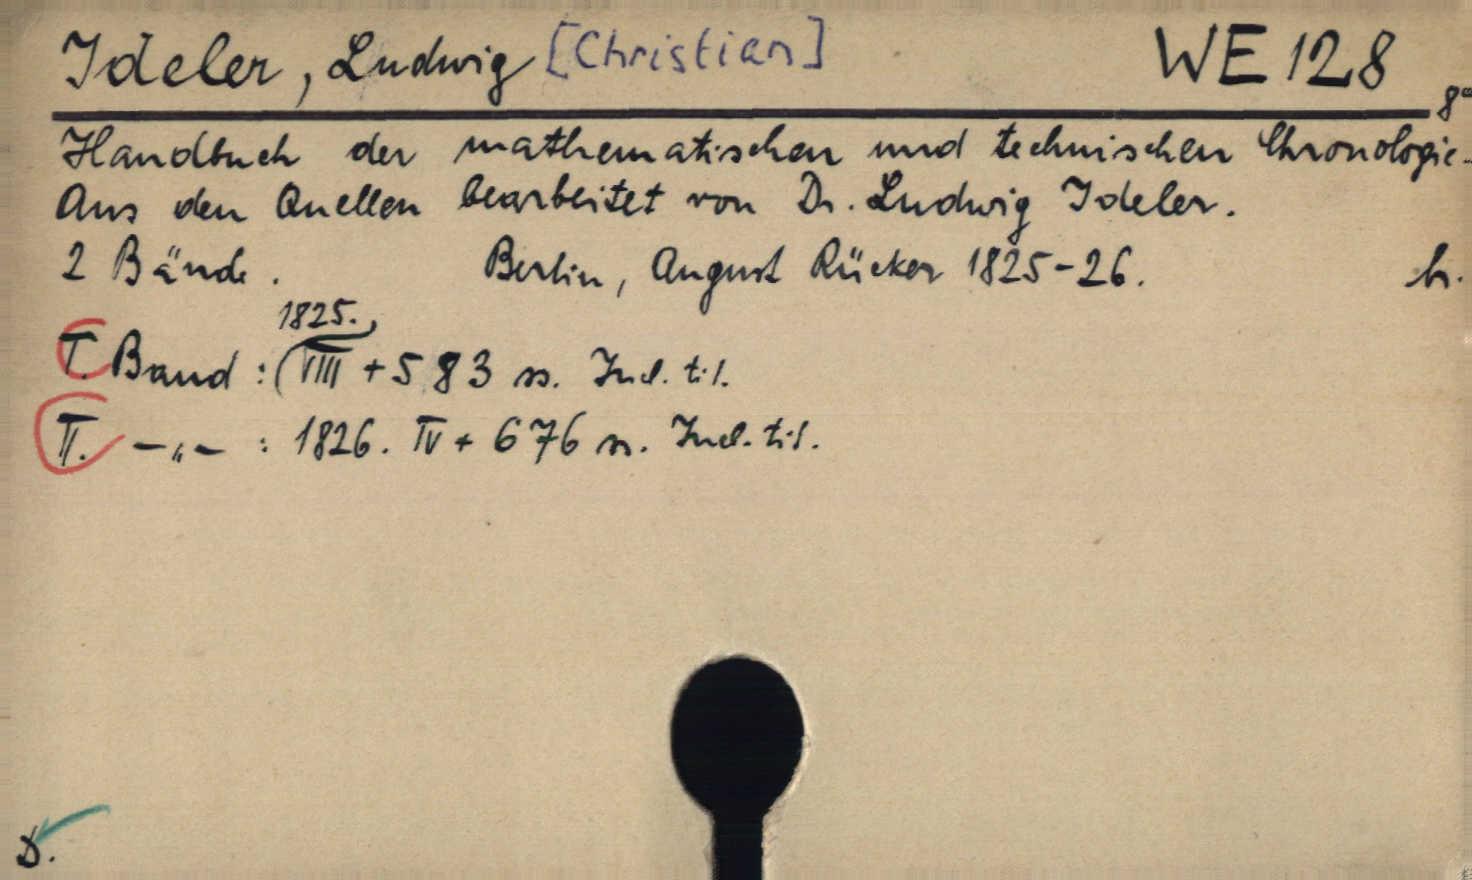 Ideler, Ludwig [Christian] WE 128
8°
Handbuch der mathematischen und technischen Chronologie.
Aus den Quellen bearbeitet von Dr. Ludwig Ideler.
2 Bände. Berlin, August Rücker 1825-26. h.
1825.
I. Band: (VIII + 583 ss. Incl. til.
II. -„- : 1826. IV + 676 ss. Incl. til.
D.